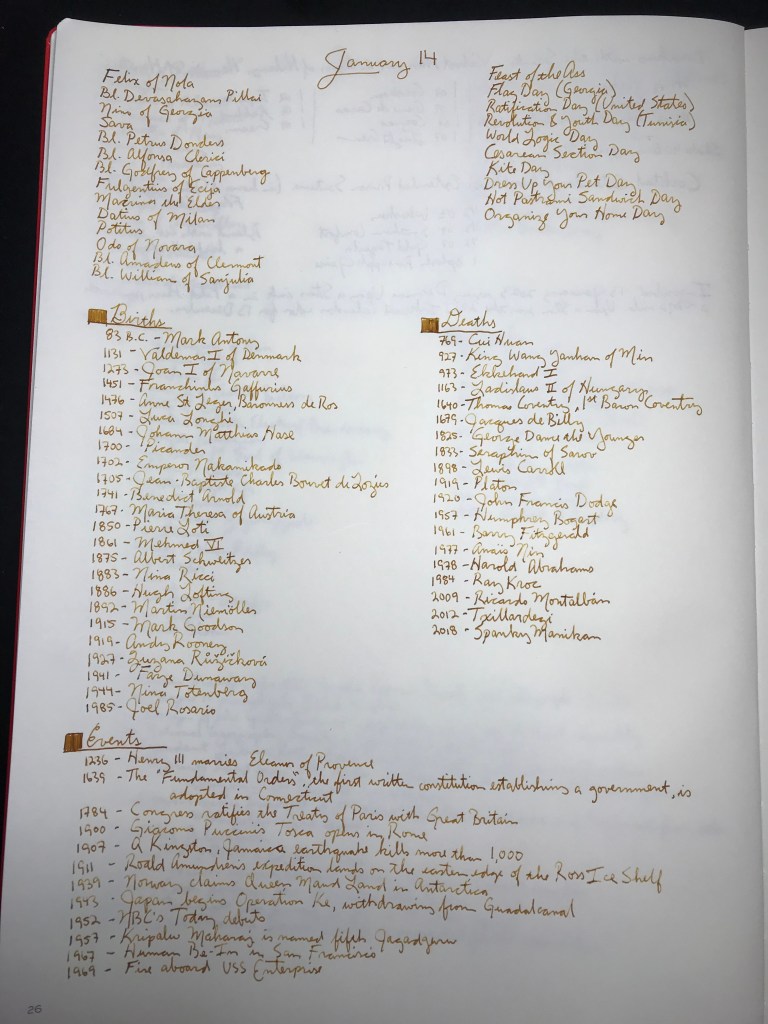 January 14
Felix of Nola
Bl. Devasahayam Pillai
Nino of Georgia
Sava
Bl. Petrus Donders
Bl. Alfonsa Clerici
Bl. Godfrey of Cappenberg
Fulgentius of Ecija
Macrina the Elder
Datius of Milan
Potitus
Odo of Novara
Bl. Amadeus of Clermont
Bl. William of Sanjulia
Feast of the Ass
Flag Day (Georgia)
Ratification Day (United States)
Revolution & Youth Day (Tunisia)
World Logic Day
Cesarean Section Day
Kite Day
Dress Up Your Pet Day
Hot Pastrami Sandwich Day
Organize Your Home Day
Births
83 B.C. - Mark Antony
1131 - Valdemar I of Denmark
1273 - Joan I of Navarre
1451 - Franchinus Gaffurius
1476 - Anne St Leger, Baroness de Ros
1507 - Luca Longhi
1684 - Johann Matthias Hase
1700 - Picander
1702 - Emperor Nakamikado
1705 - Jean-Baptiste Charles Bouvet de Lozier
1741 - Benedict Arnold
1767 - Maria Theresa of Austria
1850 - Pierre Loti
1861 - Mehmed VI
1875 - Albert Schweitzer
1883 - Nina Ricci
1886 - Hugh Lofting
1892 - Martin Niemöller
1915 - Mark Goodson
1919 - Andy Rooney
1927 - Zuzana Růžičková
1941 - Faye Dunaway
1944 - Nina Totenberg
1985 - Joel Rosario
Deaths
769 - Cui Huan
927 - King Wang Yanhan of Min
973 - Ekkehard I
1163 - Ladislaus II of Hungary
1640 - Thomas Coventry, 1st Baron Coventry
1679 - Jacques de Billy
1825 - George Dance the Younger
1833 - Seraphim of Sarov
1898 - Lewis Carroll
1919 - Platon
1920 - John Francis Dodge
1957 - Humphrey Bogart
1961 - Barry Fitzgerald
1977 - Anaïs Nin
1978 - Harold Abrahams
1984 - Ray Kroc
2009 - Ricardo Montalbán
2012 - Txillardegi
2018 - Spanky Manikan
Events
1236 - Henry III marries Eleanor of Provence
1639 - The "Fundamental Orders", the first written constitution establishing a government, is
adopted in Connecticut
1784 - Congress ratifies the Treaty of Paris with Great Britain
1900 - Giacomo Puccini's Tosca opens in Rome
1907 - A Kingston, Jamaica earthquake kills more than 1,000
1911 - Roald Amundsen's expedition lands on the eastern edge of the Ross Ice Shelf
1939 - Norway claims Queen Maud Land in Antarctica
1943 - Japan begins Operation Ke, withdrawing from Guadalcanal
1952 - NBC's Today debuts
1957 - Kripalu Maharaj is named fifth Jagadguru
1967 - Human Be-In in San Francisco
1969 - Fire aboard USS Enterprise
26